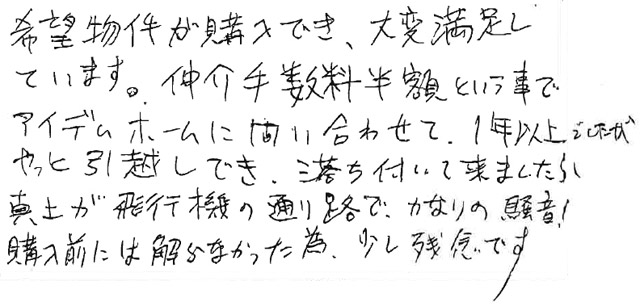 希望物件が購入でき、大変満足し
ています。仲介手数料半額という事で
アイデムホームに問い合わせて、1年以上でしたが
やっと引越しでき、落ち付いて来ましたら
真上が飛行機の通り路で、かなりの騒音!
購入前には解らなかった為、少し残念です